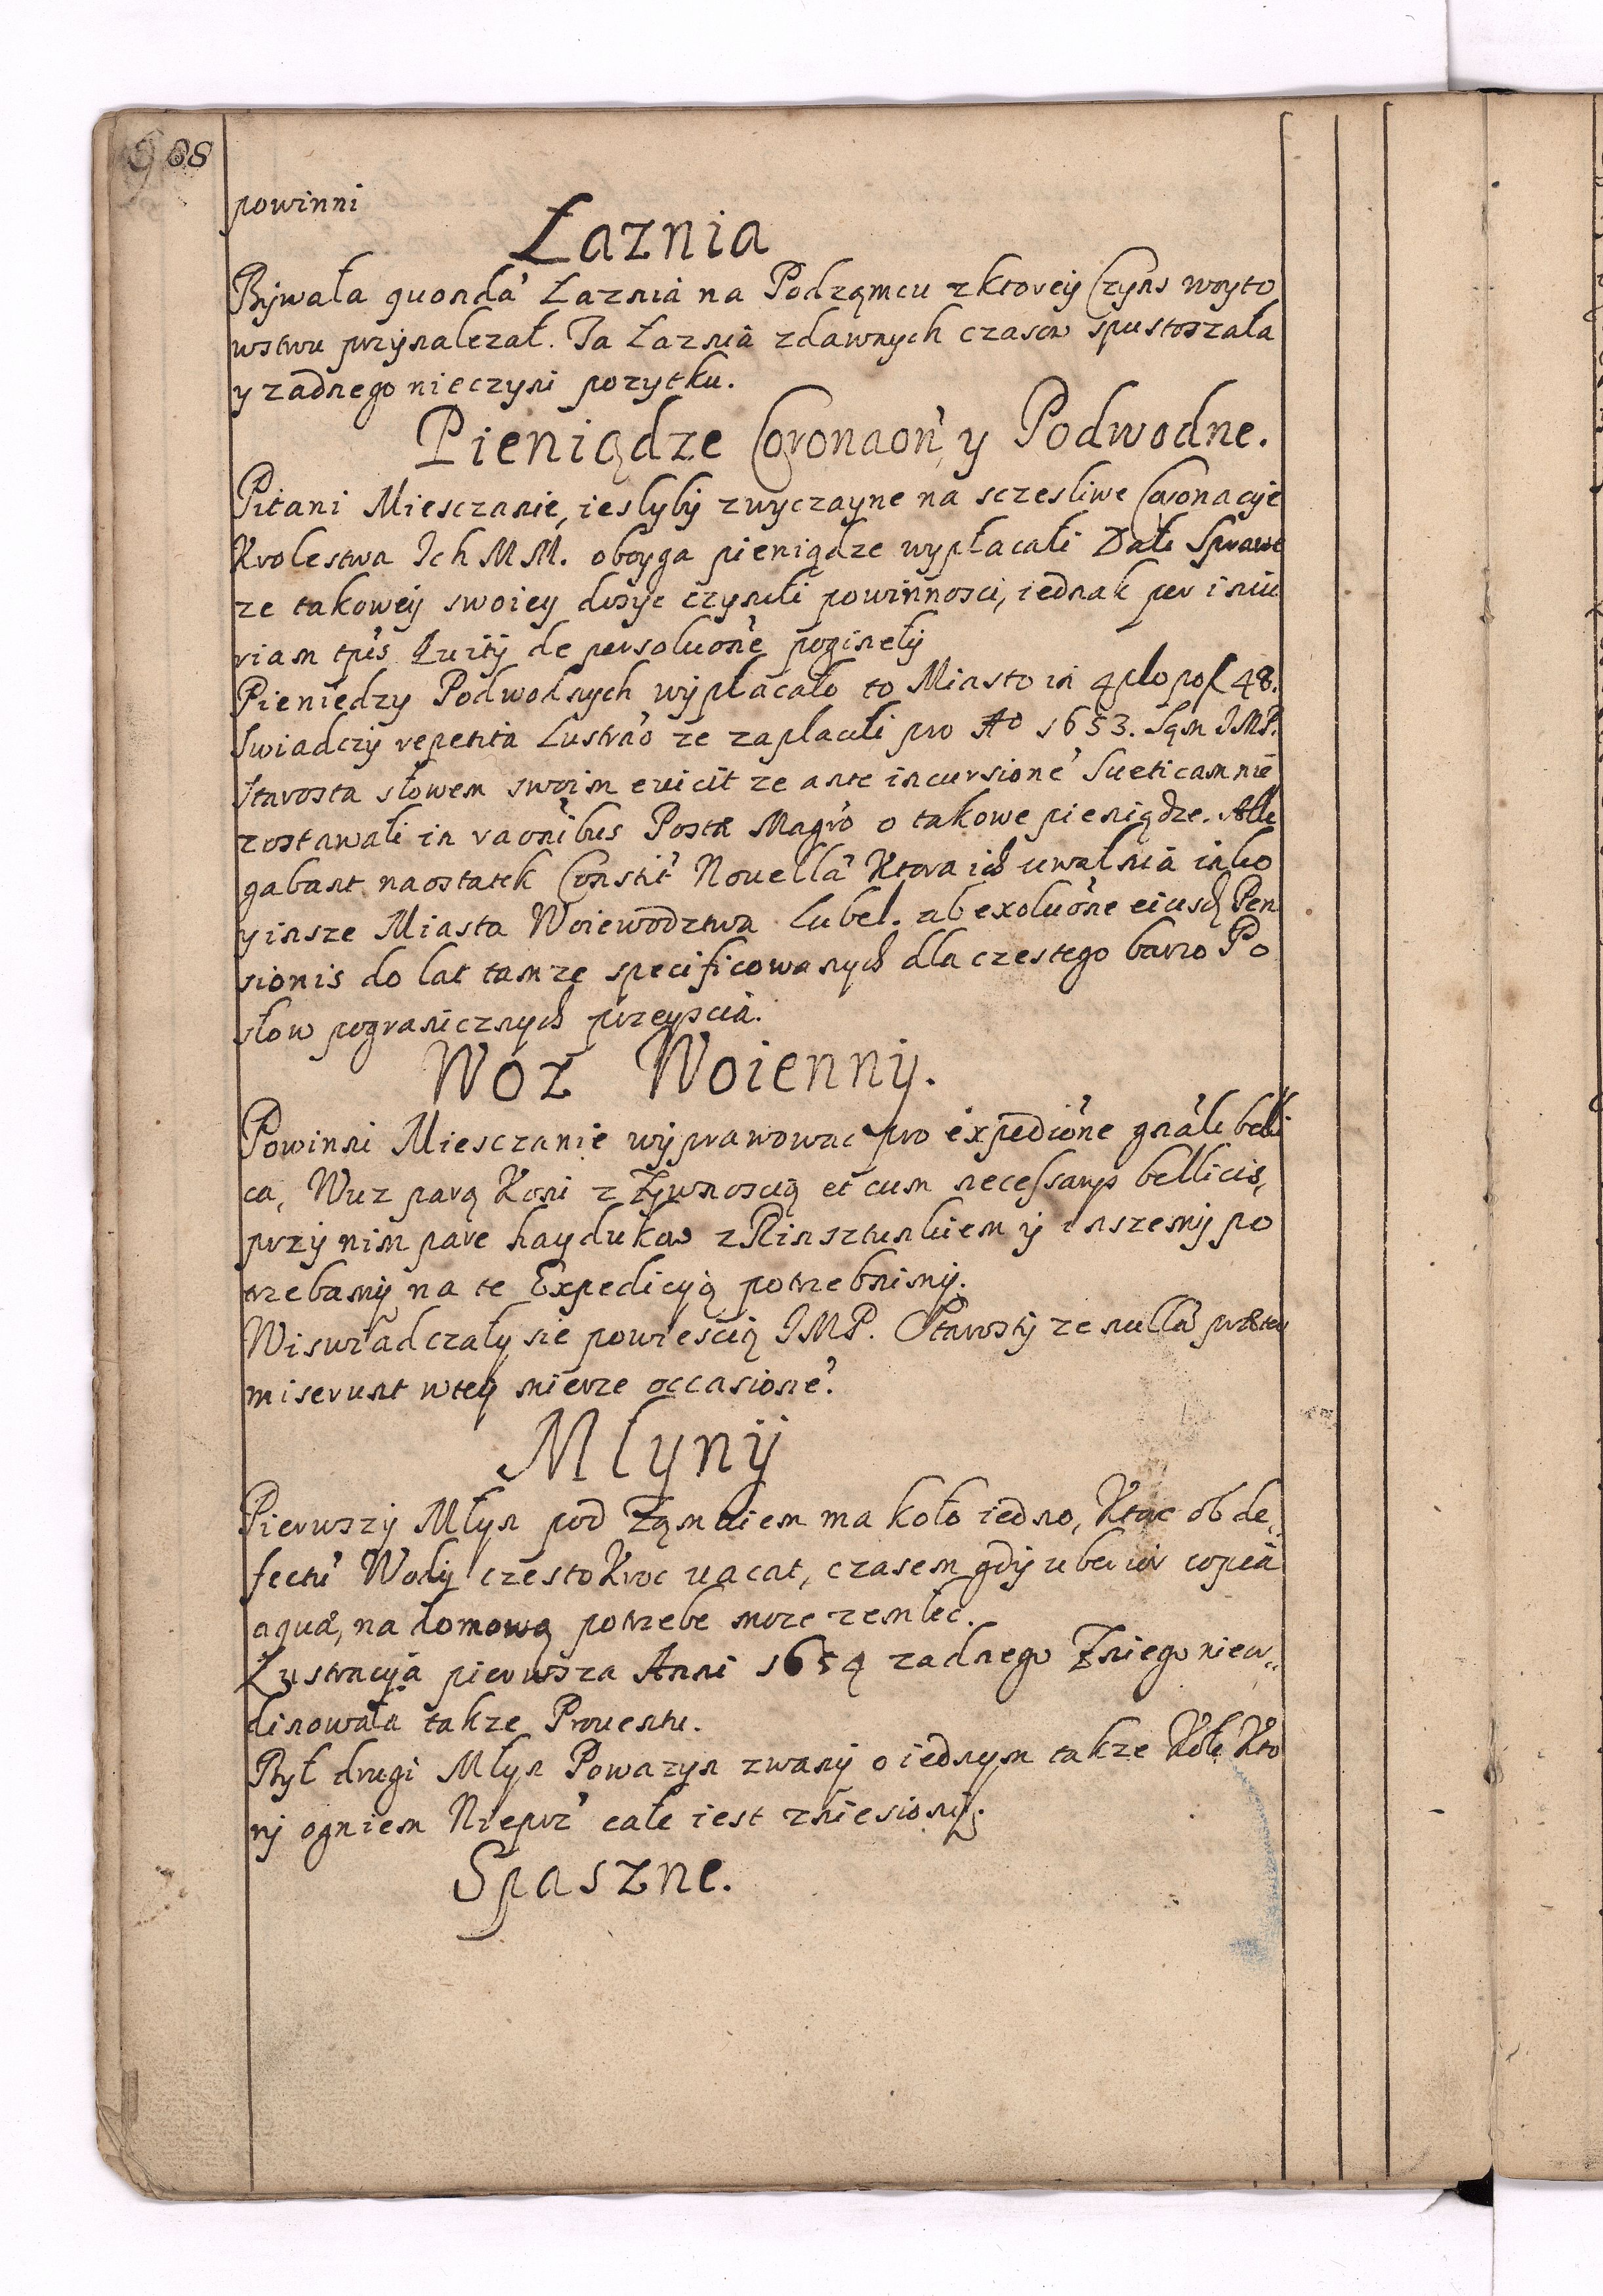 988
powinni
Łaznia
Bÿwała quondā Łaznia na Podząmcu zktoreÿ Czÿns woyto
wstwu przÿnalezał. Ta Łaznia zdawnych czasow spustoszała
y zadnego nieczyni pozytku.
Pieniądze Coronaon̄ y Podwodne.
Pitani Miesczanie, ieslybÿ zwyczayne na sczesliwe Coronacÿe
Krolestwa Ich MM. oboyga pieniądze wypłacali Dali Sprawe
ze takoweÿ swoiey dosyc czynili powinnosci, iednak per iniu
riam tp̄is Quitÿ de persoluōne poginełÿ
Pieniedzy Podwodnych wÿpłacało to Miasto in 4plo po f 48.
Swiadczÿ repetita Lustrāo ze zapłacili pro Aō 1653. Sąm JMP.
Starosta słowem swoim euicit ze ante incursionē Sueticam nie
zostawali in raōnibus Postæ Magr̄o o takowe pieniądze. Alle
gabant naostatek Constit̄ Nouellā Ktora ich uwalnia iako
y insze Miasta Woiewodztwa Lubel. ab exoluōne eiusd Pen
sionis do lat tamze specificowanych dla czestego barzo Po
słow pogranicznych przeyscia.
Woz Woiennÿ.
Powinni Miesczanie wÿprawowac pro expediōne gnāli belli
ca, Wuz parą Koni z Zÿwnoscią et cum necessarÿs bellicis,
przÿ nim pare haydukow z Rinsztunkiem ÿ inszemÿ po
trzebamÿ na te Expedicÿą potrzebnimÿ.
Wiswiadczałÿ sie powiescią JMP. Starostÿ ze nullā præter
miserunt wteÿ mierze occasionē.
Młynÿ
Pierwszÿ Młyn pod Ząmkiem ma koło iedno, Ktore ob de„
fectū Wodÿ czestokroc uacat, czasem gdÿ uberior copia
aquæ, na domową potrzebe moze zemlec.
Lustracÿa pierwsza Anni 1654 zadnego Zniego niew„
dinowała takze Prouentu.
Bÿł drugi Młyn Powazyn zwanÿ o iednym takze Kole Kto
rÿ ogniem Niepr̄z cale iest zniesionÿ.
Spaszne.